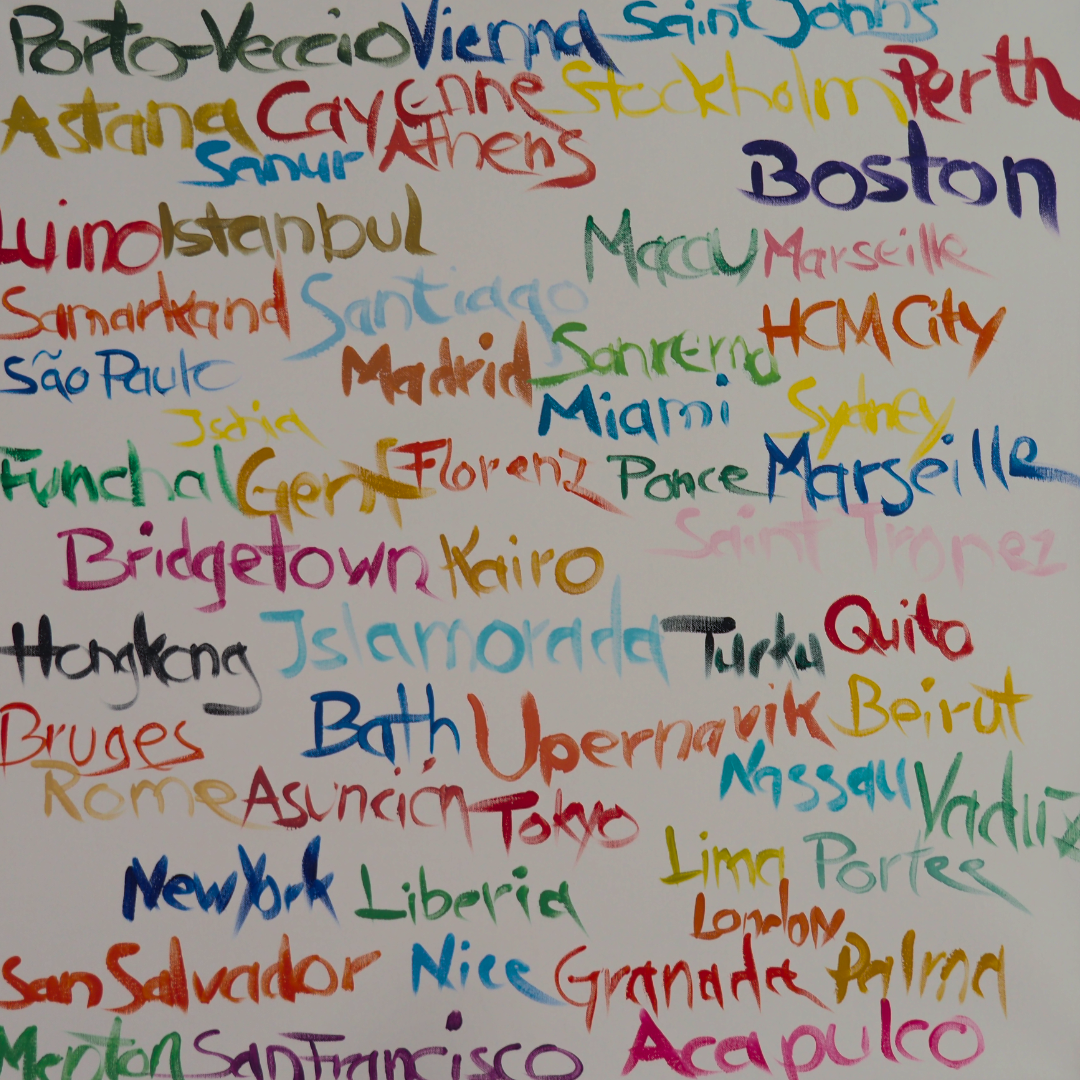 Porto-Veccio Vienna Saint Johns
Astana Cayenne Stockholm Perth
Sanur Athens Boston
Luino Istanbul Macau Marseille
Samarkand Santiago HCM City
São Paulo Madrid Sanremo
Miami Sydney
Istia
Funchal Genf Florenz Ponce Marseille
Bridgetown Kairo Saint Tropez
Hongkong Islamorada Turku Quito
Bruges Bath Upernavik Beirut
Rome Asunción Tokyo Nassau Vaduz
New York Liberia Lima Portee
London
San Salvador Nice Granada Palma
Menton San Francisco Acapulco